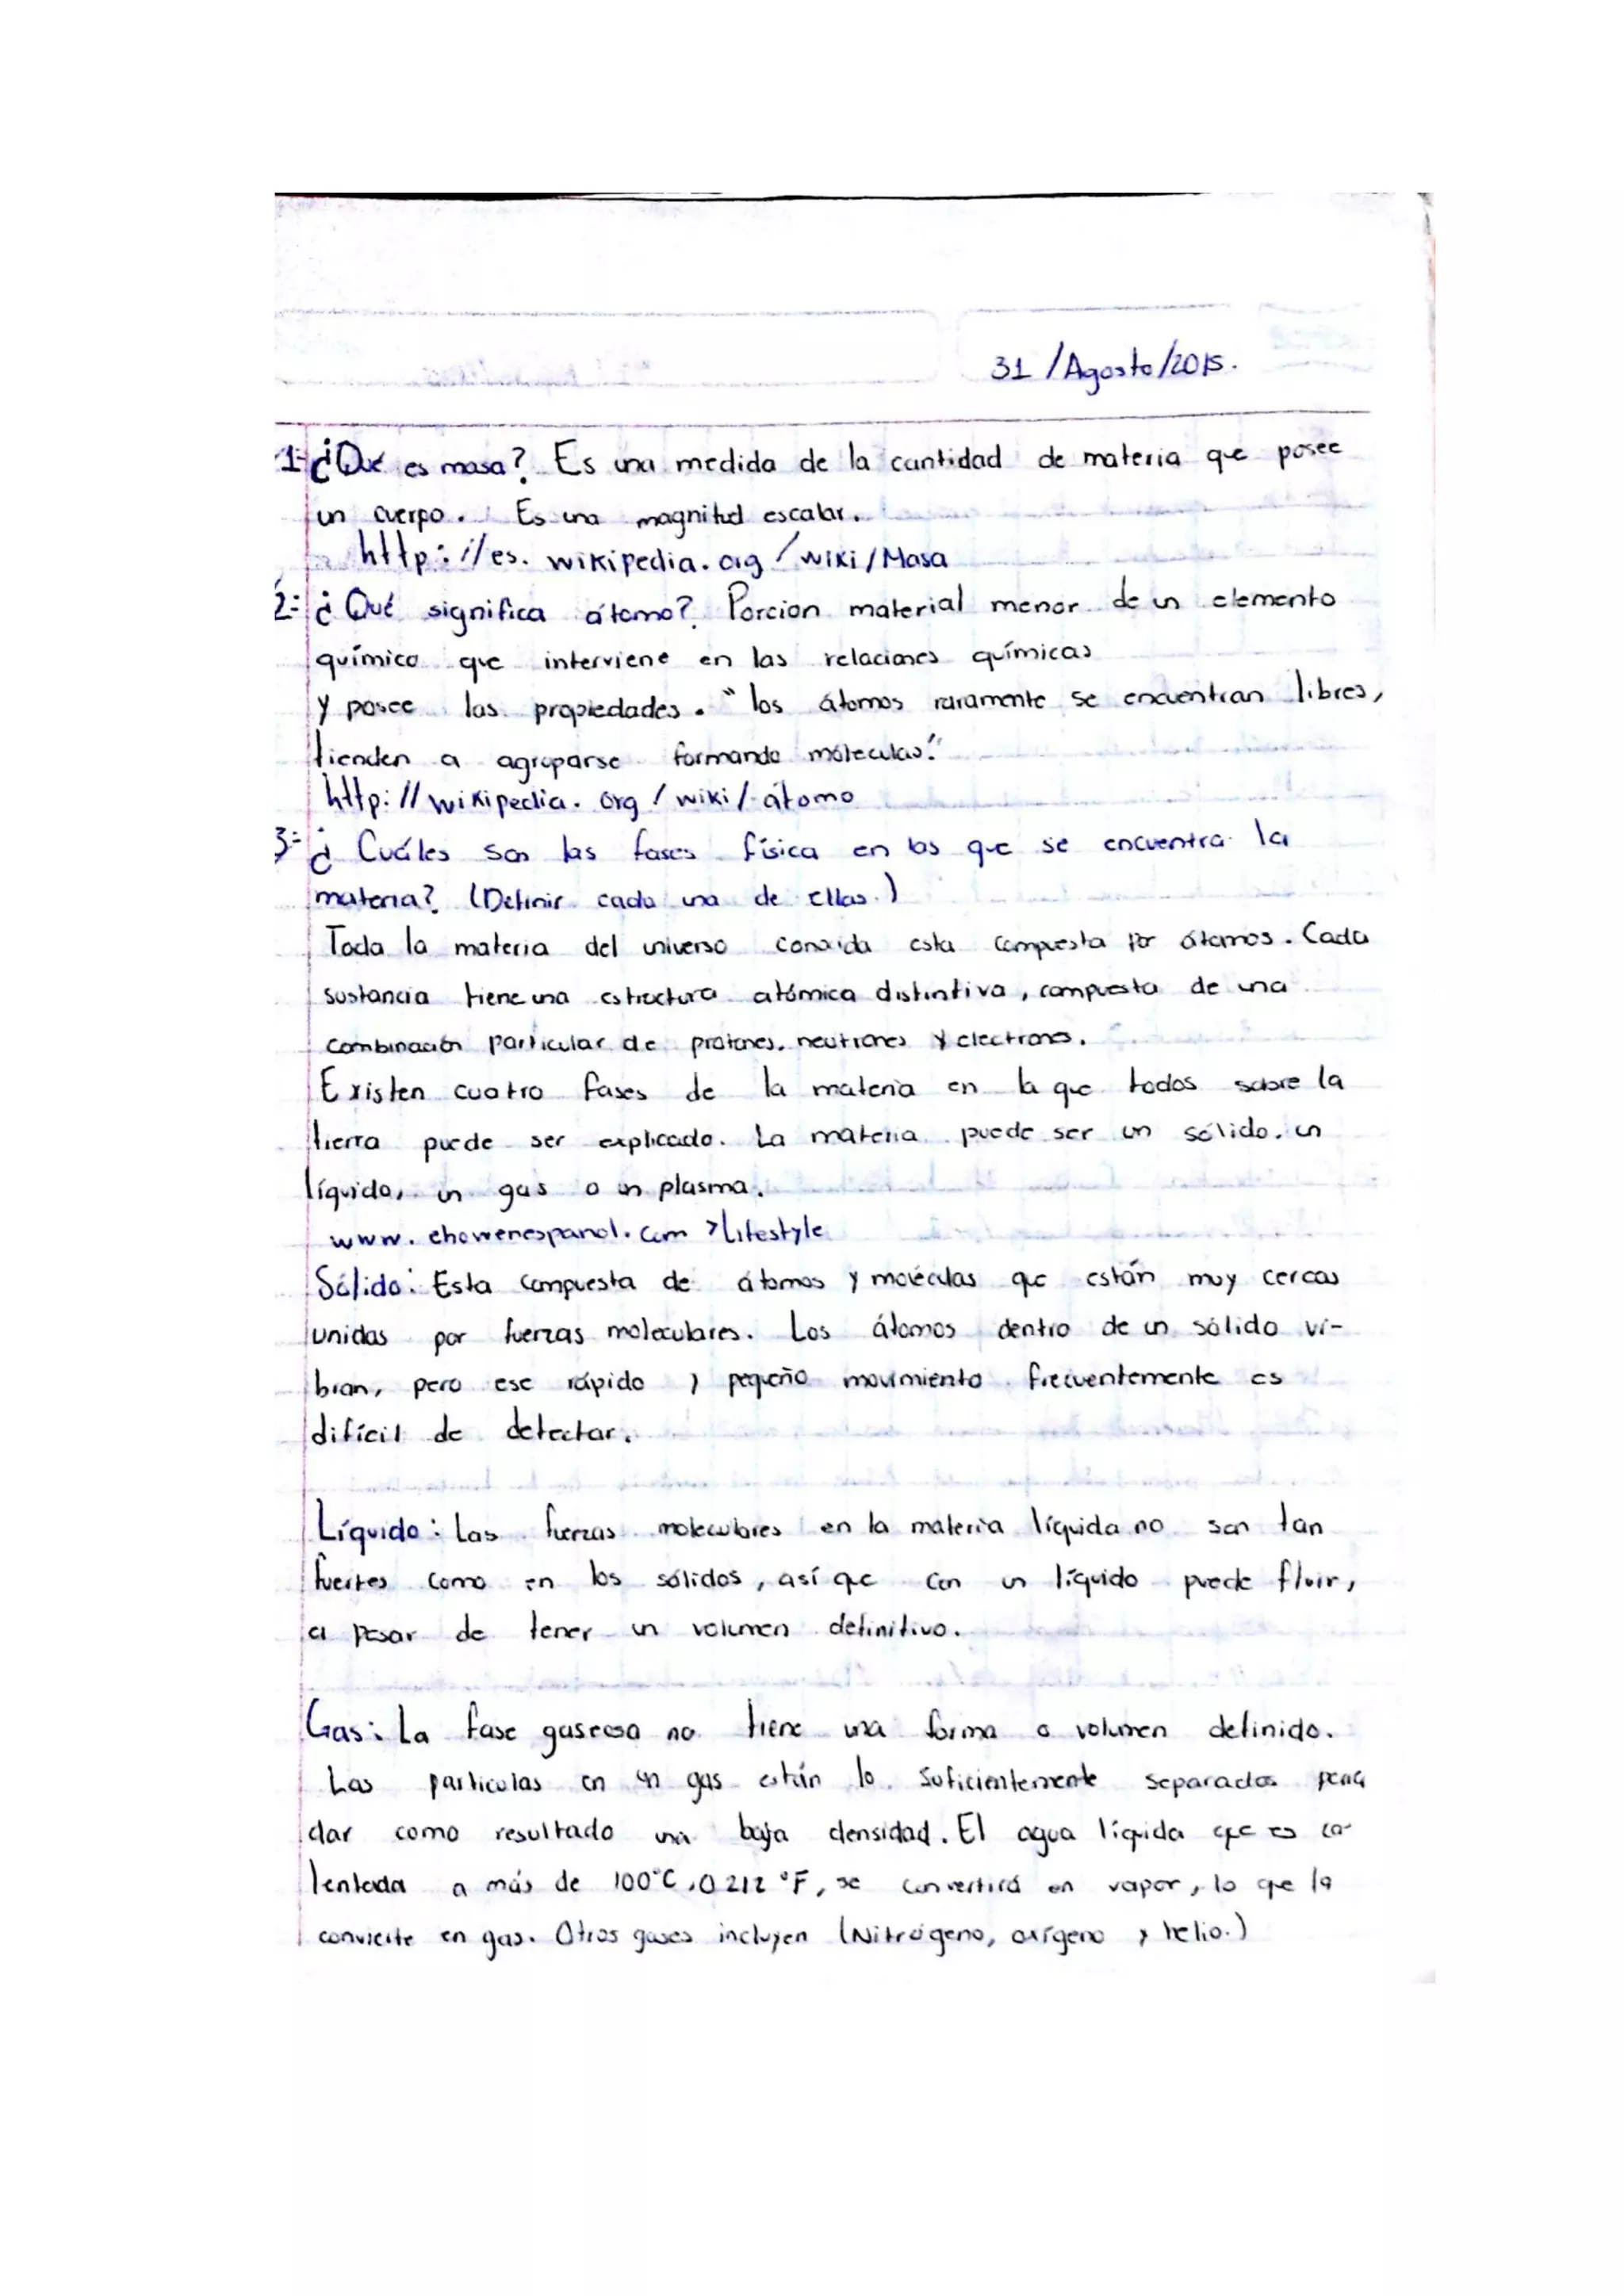 31/Agosto/2015.
1-¿Qué es masa? Es una medida de la cantidad de materia que posee
un cuerpo. Es una magnitud escalar.
http://es.wikipedia.org/wiki/Masa
2-¿Qué significa átomo? Porcion material menor de un elemento
químico que interviene en las relaciones químicas
y posee las propiedades. "los átomos raramente se encuentran libres,
tienden a agruparse formando móleculas."
http://wikipedia.org/wiki/átomo
3-¿Cuáles son las fases física en las que se encuentra la
materia? (Definir cada una de ellas.)
Toda la materia del universo conocida esta compuesta por átomos. Cada
sustancia tiene una estructura atómica distintiva, compuesta de una
combinación particular de protones, neutrones y electrones.
Existen cuatro fases de la materia en la que todos sobre la
tierra puede ser explicado. La materia puede ser un sólido, un
líquido, un gas o un plasma.
www.ehowenespanol.com >Lifestyle
Sólido: Esta compuesta de átomos y moléculas que están muy cercas
unidas por fuerzas moleculares. Los átomos dentro de un sólido vi-
bran, pero ese rápido y pequeño movimiento frecuentemente es
difícil de detectar.
Líquido: Las fuerzas moleculares en la materia líquida no son tan
fuertes como en los sólidos, así que con un líquido puede fluir,
a pesar de tener un volumen definitivo.
Gas: La fase gaseosa no tiene una forma o volumen definido.
Las particulas en un gas están lo suficientemente separados para
dar como resultado una baja densidad. El agua líquida que es ca-
lentada a más de 100°C, O 212 °F, se convertirá en vapor, lo que la
convierte en gas. Otros gases incluyen (Nitrógeno, oxígeno y helio.)